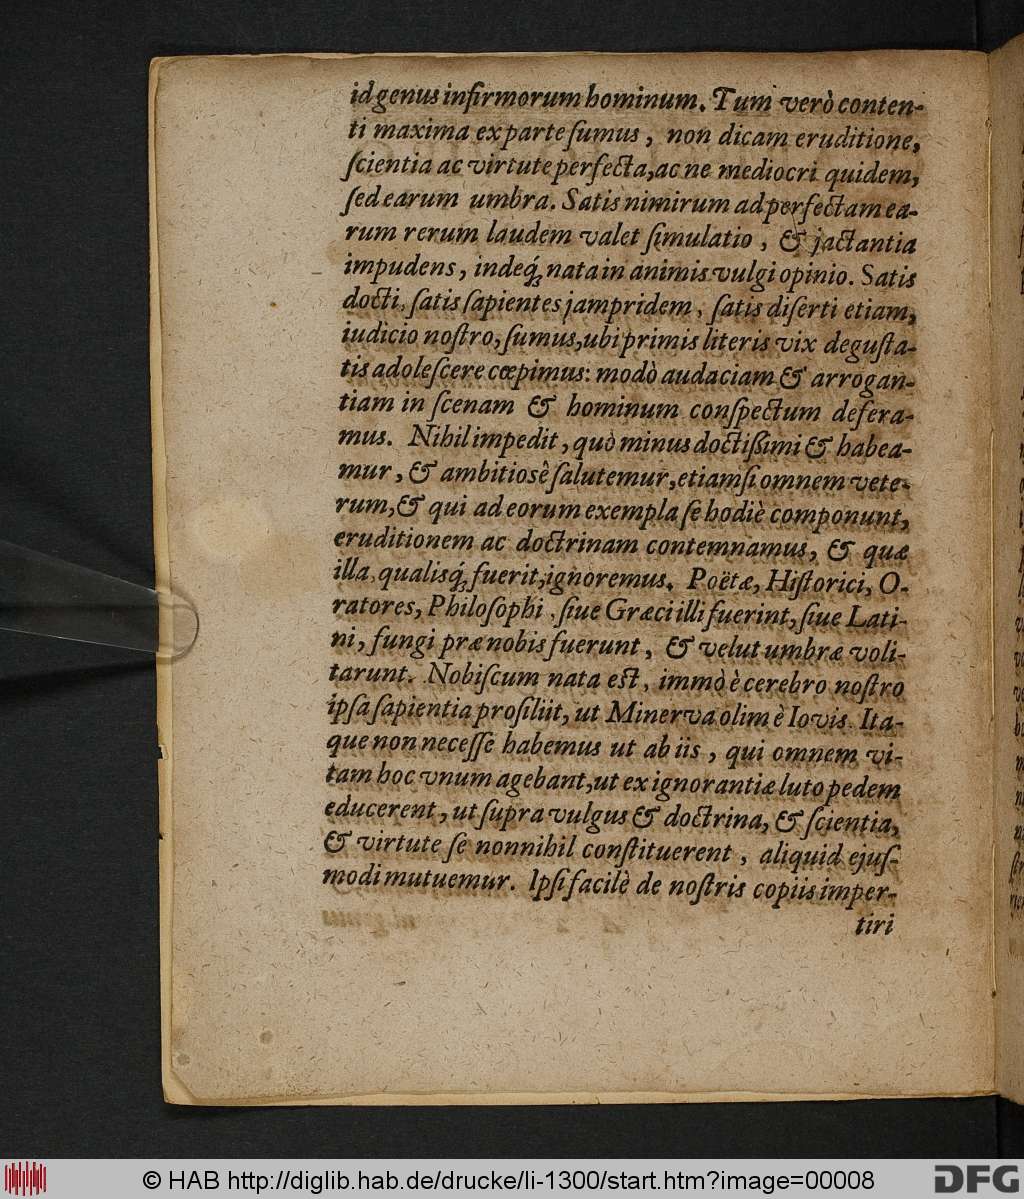 id genus infirmorum hominum. Tum verò conten-
ti maxima ex parte ſumus, non dicam eruditione,
ſcientia ac virtute perfecta, ac ne mediocri quidem,
ſed earum umbra. Satis nimirum ad perfectam ea-
rum rerum laudem valet ſimulatio, & jactantia
impudens, indeq́ꝫ nata in animis vulgi opinio. Satis
docti, ſatis ſapientes jampridem, ſatis diſerti etiam,
iudicio noſtro, ſumus, ubi primis literis vix deguſta-
tis adoleſcere cœpimus: modò audaciam & arrogan-
tiam in ſcenam & hominum conſpectum defera-
mus. Nihil impedit, quò minus doctißimi & habea-
mur, & ambitiosè ſalutemur, etiamſi omnem vete-
rum, & qui ad eorum exempla ſe hodiè componunt,
eruditionem ac doctrinam contemnamus, & quæ
illa, qualisq́ꝫ fuerit, ignoremus. Poëtæ, Hiſtorici, O-
ratores, Philoſophi, ſiue Græci illi fuerint, ſiue Lati-
ni, fungi præ nobis fuerunt, & velut umbræ voli-
tarunt. Nobiſcum nata est, immò è cerebro noſtro
ipſa ſapientia proſiliit, ut Minerva olim è Iovis. Ita-
que non neceſſe habemus ut ab iis, qui omnem vi-
tam hoc vnum agebant, ut ex ignorantiæ luto pedem
educerent, ut ſupra vulgus & doctrina, & ſcientia,
& virtute ſe nonnihil conſtituerent, aliquid ejuſ-
modi mutuemur. Ipſi facilè de noſtris copiis imper-
tiri
© HAB http://diglib.hab.de/drucke/li-1300/start.htm?image=00008
DFG